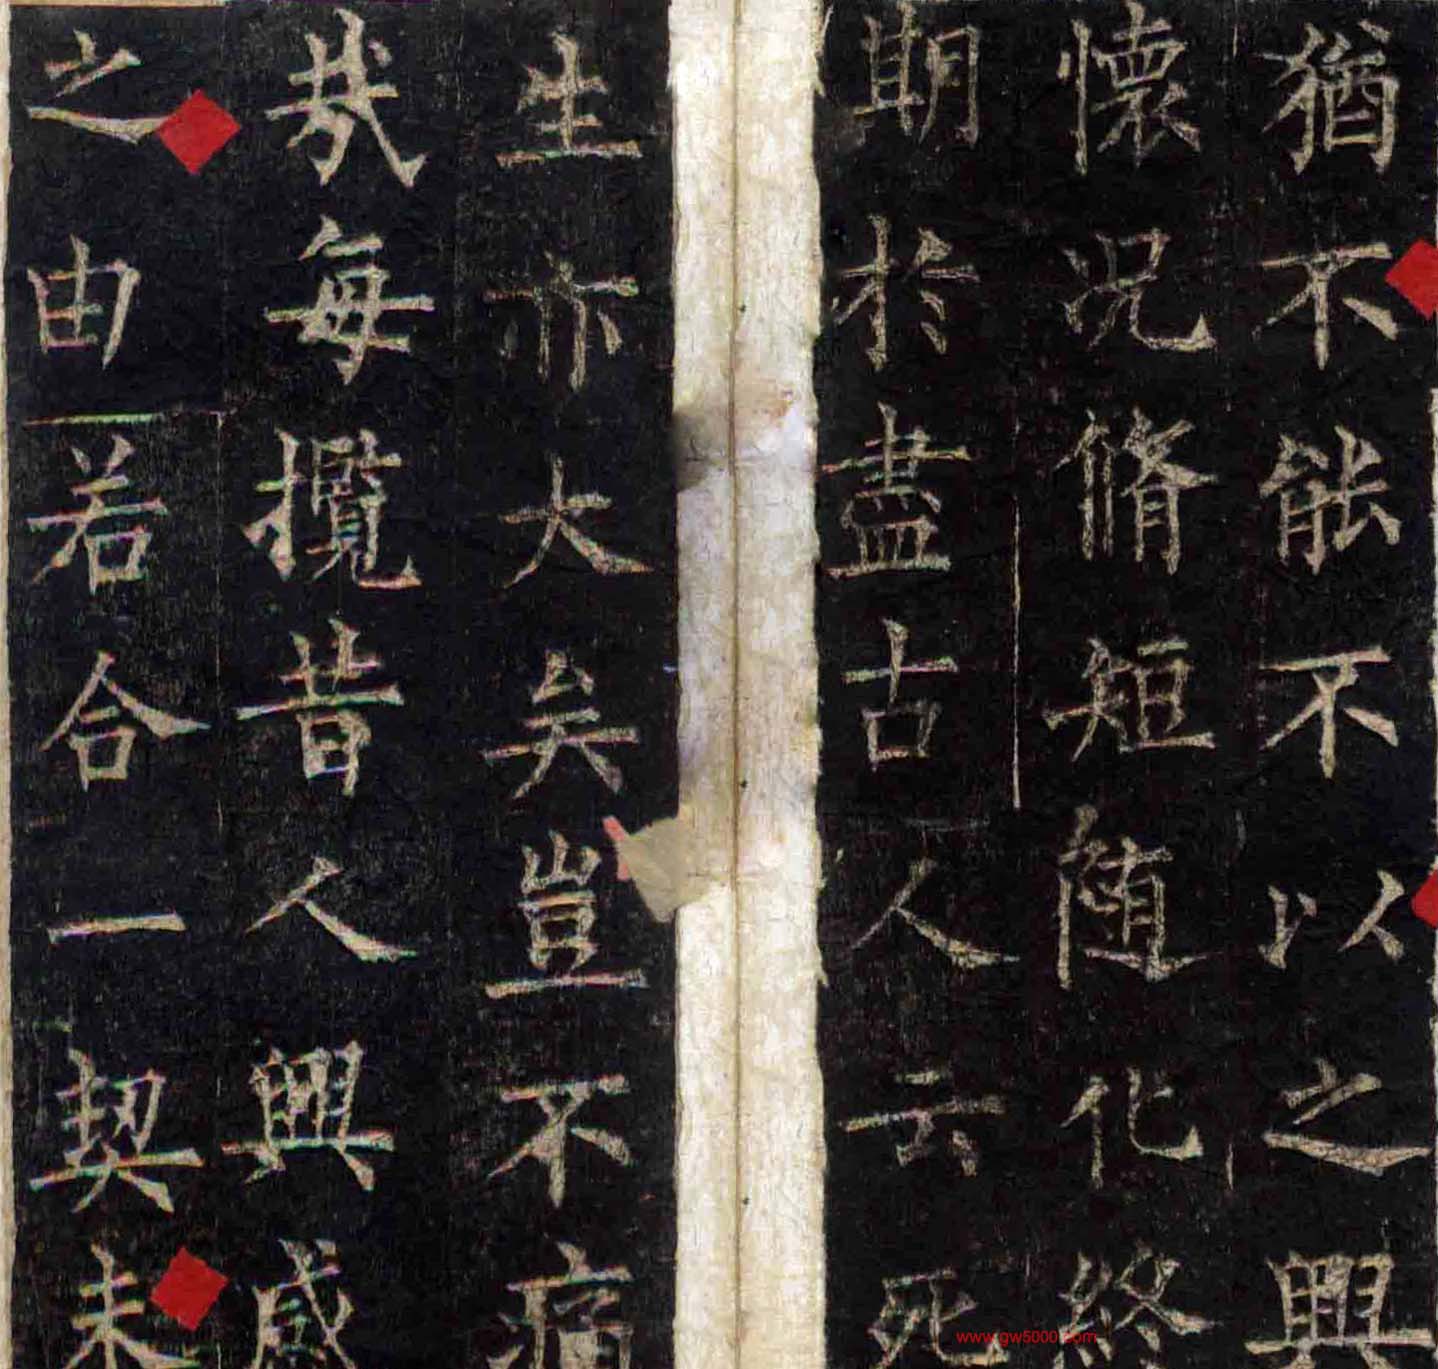 猶不能不以之興
懷況脩短随化終
期於盡古人云死
生亦大矣豈不痛
哉每攬昔人興感
之由若合一契未
www.gw5000.com